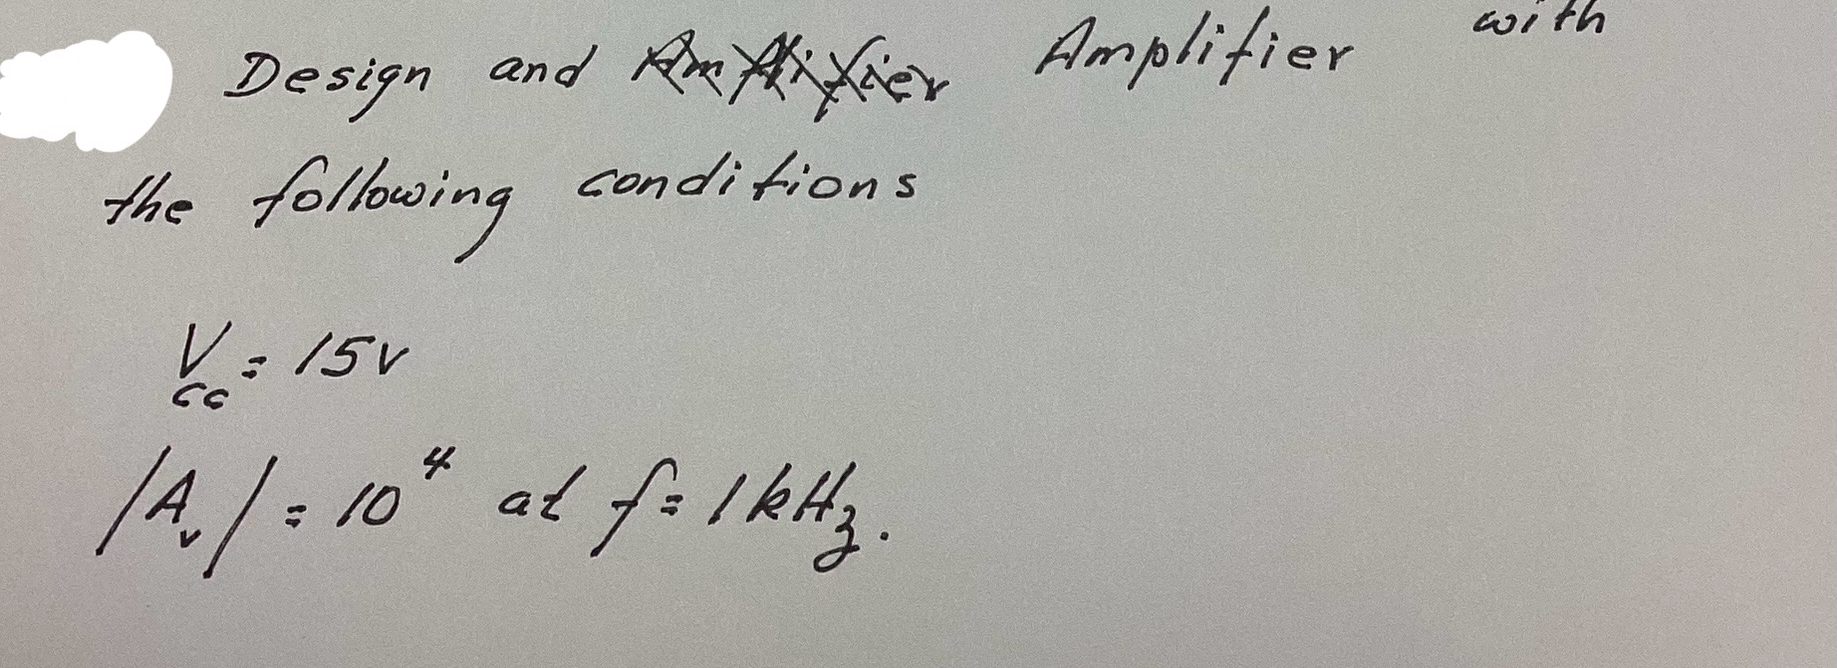 Design and Amplifier Amplifier with
the following conditions
Vcc = 15v
|Av| = 10⁴ at f = 1kHz.